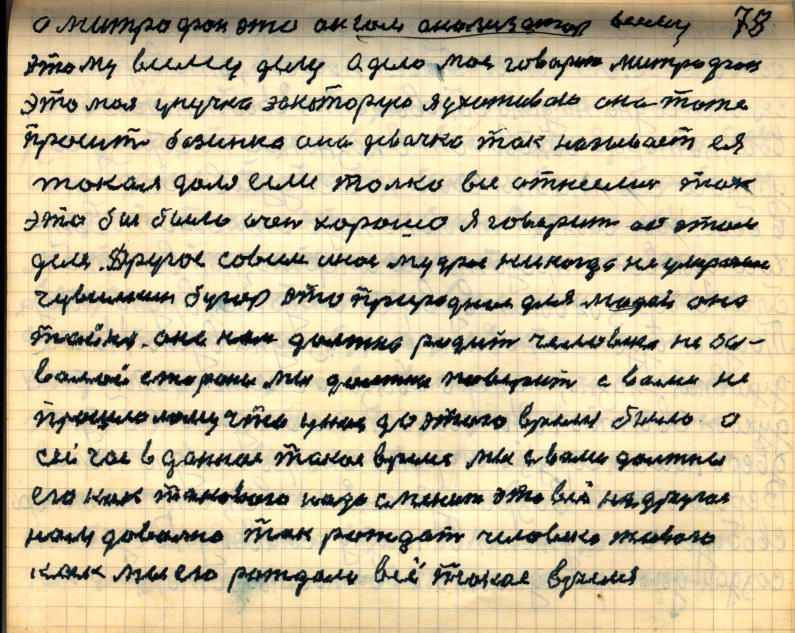 а митрофан это ангел анализатор всему 78
этому всему делу А дело мое говорит митрофан
это моя унучка за которую я ухотиваю она тоже
просит бабинка она девачка так называет ея
такая доля если толко все отнесли так
это бы было очен хорошо Я говорит об этом
деле. Другое совсем иное мудрое никогда не умирание
чувилкин бугор это природное для людей оно
тайна. она нам должна родит человека не бы-
валой стороны мы должны поверит с вами не
прошлому что у нас до этого время было. а
сей час в данное такое время мы с вами должны
его как такового надо сменит это всё на другое
нам доволно так рождат человека живого
как мы его рождали всё такое время